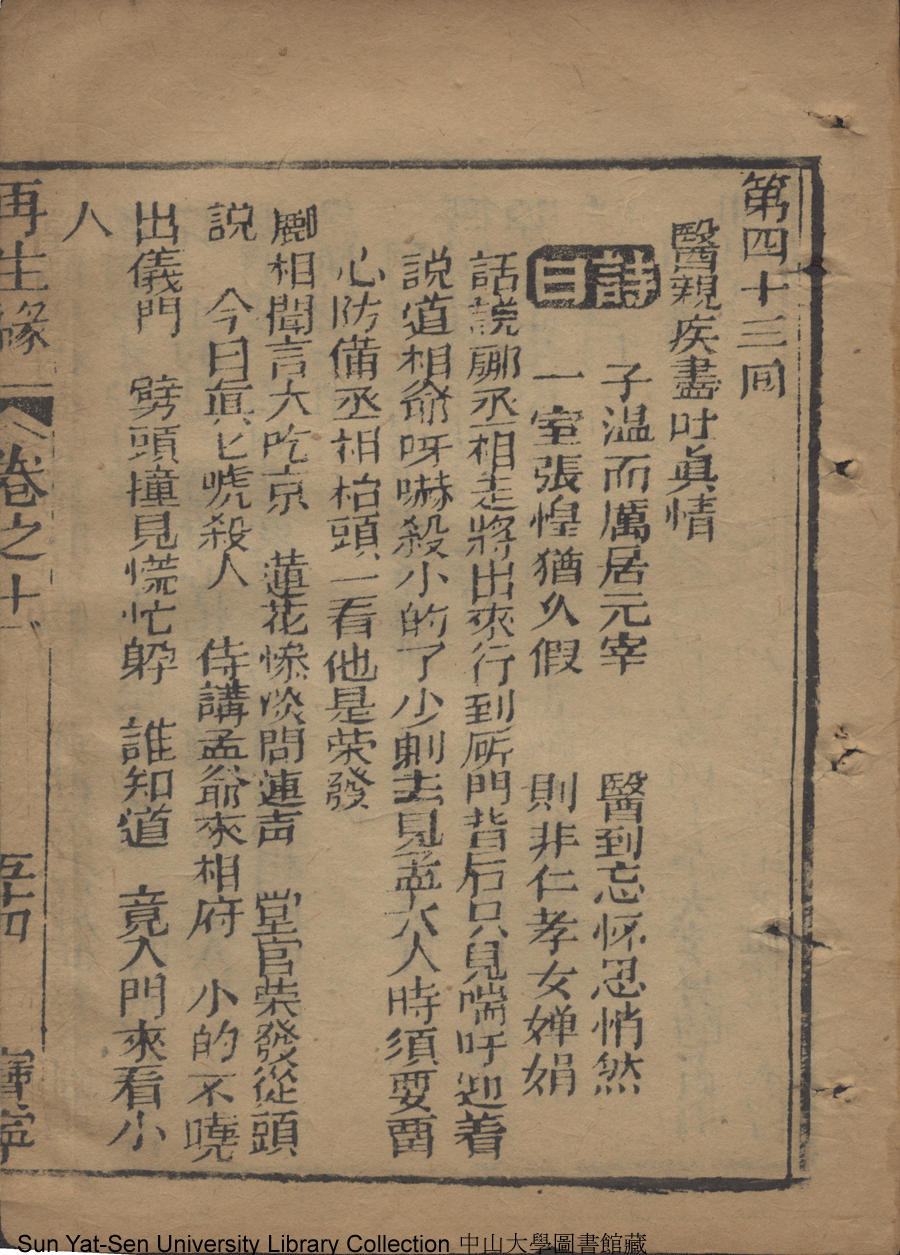 第四十三囬
醫親疾盡吐真情
詩 子温而厲居元宰 醫到忘怀忍悄然
曰 一室張惶猶久假 則非仁孝女嬋娟
話説酈丞相走將出來行到厛門背后只見喘吁迎着
説道相爺呀嚇殺小的了少刺去見孟大人時須要畱
心防備丞相枱頭一看他是荣發
酈相聞言大吃京 蓮花慘淡問連声 堂官荣發從頭
説 今日真匕唬殺人 侍講孟爺來相府 小的不嘵
出儀門 劈頭撞見慌忙躱 誰知道 竟入門來看小
人
再生緣 卷之十一 五十四 寳寧
Sun Yat-Sen University Library Collection 中山大學圖書館藏